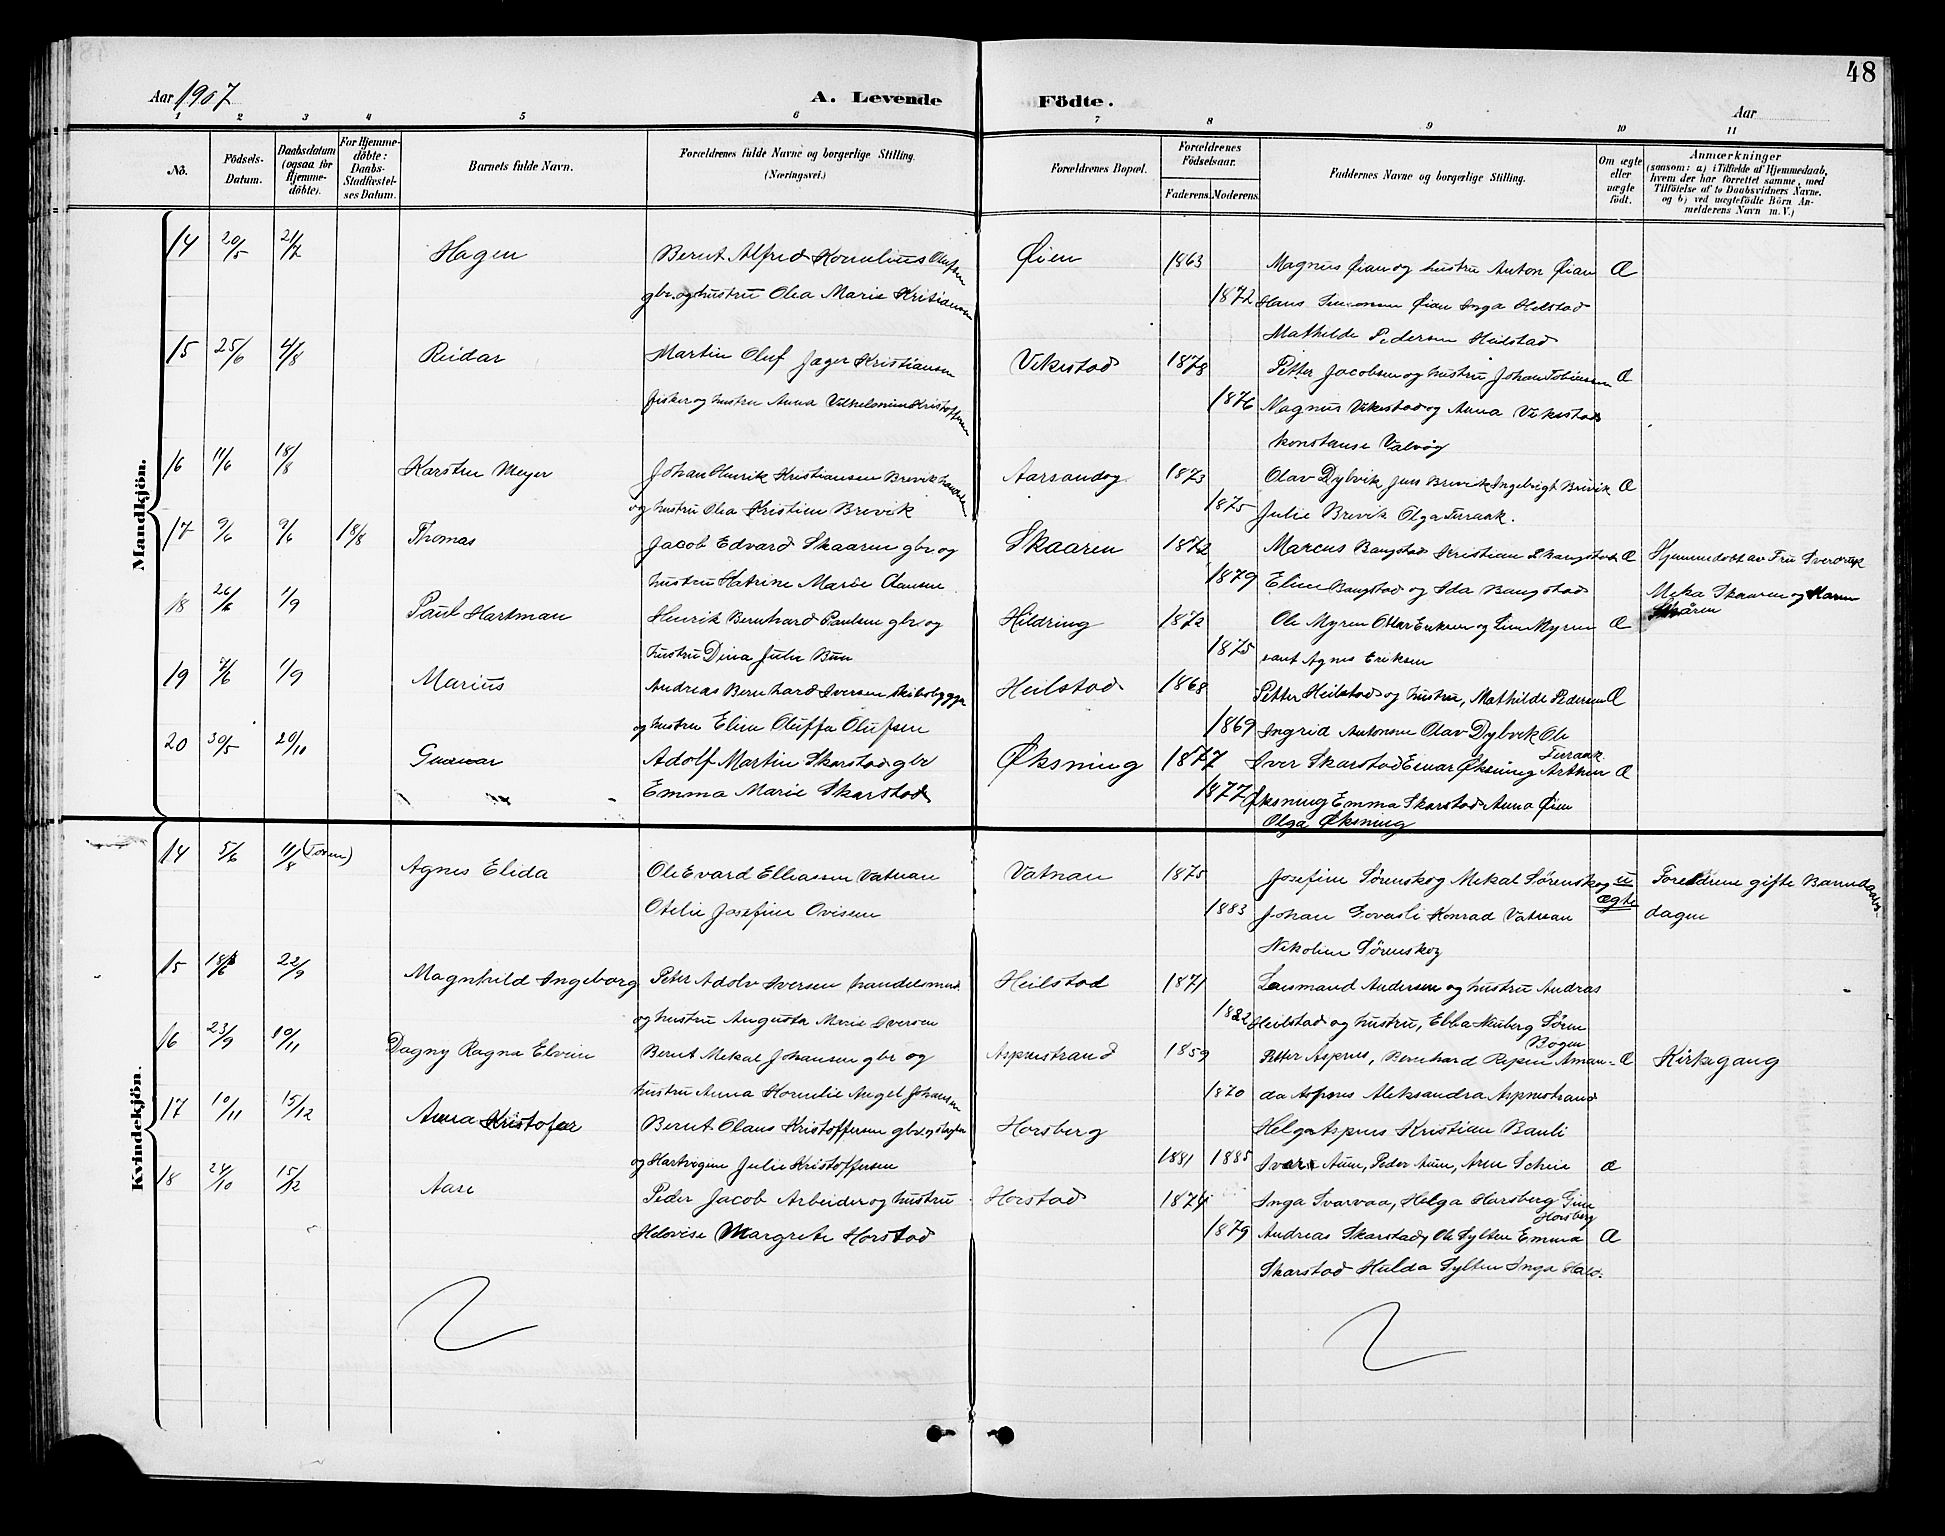 48
Aar 1907
A. Levende Födte.
Aar
1 2 3 4 5 6 7 8 9 10 11
No.
Födsels-Datum.
Daabsdatum (ogsaa for Hjemme-döbte).
For Hjemme-döbte: Daabs-Stadfæstel-ses Datum.
Barnets fulde Navn.
Forældrenes fulde Navne og borgerlige Stilling. (Næringsvei.)
Forældrenes Bopæl.
Forældrenes Födselsaar.
Faderens. Moderens.
Faddernes Navne og borgerlige Stilling.
Om ægte eller uægte födt.
Anmærkninger
(saasom: a) i Tilfælde af Hjemmedaab, hvem der har forrettet samme, med Tilföielse af to Daabsvidners Navne. og b) ved uægtefödte Börn An-melderens Navn m. V.)
Mandkjön.
14 20/5 21/7 Hagen Bernt Alfred Kornelius Olufsen Øien 1863 Magnus Øian og hustru Anton Øian Æ
gbr. og hustru Olea Marie Kristiansen 1872 Hans Simonsen Øian Inga Heilstad
Mathilde Pedersen Heilstad
15 25/6 4/8 Reidar Martin Oluf Jager Kristiansen Vikestad 1878 Petter Jacobsen og hustru Johan Tobiassen Æ
fisker og hustru Anna Vilhelmine Kristoffersen 1876 Magnus Vikestad og Anna Vikestad
Konstanse Valvög
16 11/6 18/8 Karsten Meyer Johan Henrik Kristiansen Brevik Aarsandøy 1873 Olav Dybvik Jens Brevik Ingebrigt Brevik Æ
og hustru Olea Kristine Brevik 1875 Julie Brevik Olga Terraak.
17 9/6 9/6 18/8 Thomas Jacob Edvard Skaaren gbr og Skaaren 1872 Marcus Bangstad Kristian Bangstad Æ Hjemmedöbt av Fru Sverdrup
hustru Katrine Marie Olausen 1879 Eline Bangstad og Ida Bangstad Meka Skaaren og Karen
Skåren
18 26/6 1/9 Paul Hartman Henrik Bernhard Paulsen gbr og Hildring 1872 Ole Myren Ottar Eriksen og Lina Myren Æ
hustru Dina Julie Bun 1875 samt Agnes Eriksen
19 7/6 1/9 Marius Andreas Bernhard Iversen skibsbygger Heilstad 1868 Petter Heilstad og hustru, Mathilde Pedersen Æ
og hustru Elen Oluffa Olufsen 1869 Ingrid Antonsen Olav Dybvik Ole
Terraak
20 30/5 20/10 Gunnar Adolf Martin Skarstad gbr Øksning 1877 Iver Skarstad Einar Øksning Arthur Æ
Emma Marie Skarstad 1877 Øksning Emma Skarstad Anna Øien
Olga Øksning
Kvindekjön.
14 5/6 11/8 (Foren) Agnes Elida Ole Evard Elleassen Vatnan Vatnan 1875 Josefine Sørenskog Mekal Sørenskog u Foreldrene gifte Barndaabs.
Otelie Josefine Ovisen 1883 Johan Govasli Konrad Vatnan ægte dagen
Nikoline Sørenskog
15 18/6 22/9 Magnhild Ingeborg Peter Adolv Iversen handelsmnd. Heilstad 1871 Lensmand Andersen og hustru Andras
og hustru Augusta Marie Iversen 1882 Heilstad og hustru, Ebba Neuberg Sören
Bogen
16 23/9 10/11 Dagny Ragna Elvine Bernt Mekal Johansen gbr og Aspnestrand 1859 Petter Aspnes, Bernhard Repen Aman- Æ Kirkegang
hustru Anna Kornelie Angel Johansen 1870 da Aspnes Aleksandra Aspnestrand
Helga Aspnes Kristian Bauli
17 10/11 15/12 Anna Kristofær Bernt Olaus Kristoffersen gbr. Horsberg
og Hartvigine Julie Kristoffersen 1881 1885 Ivar Aune, Peder Aune, Aren Scheie Æ
18 24/10 15/12 Aase Peder Jacob Arbeider og hustru Horstad 1874 Inga Svarvaa, Helga Horsberg Gine
Horsberg
Helovise Margrete Horstad 1879 Andreas Skarstad, Ole Sylten Emma Æ
Skarstad Hulda Sylten Inga Hald.